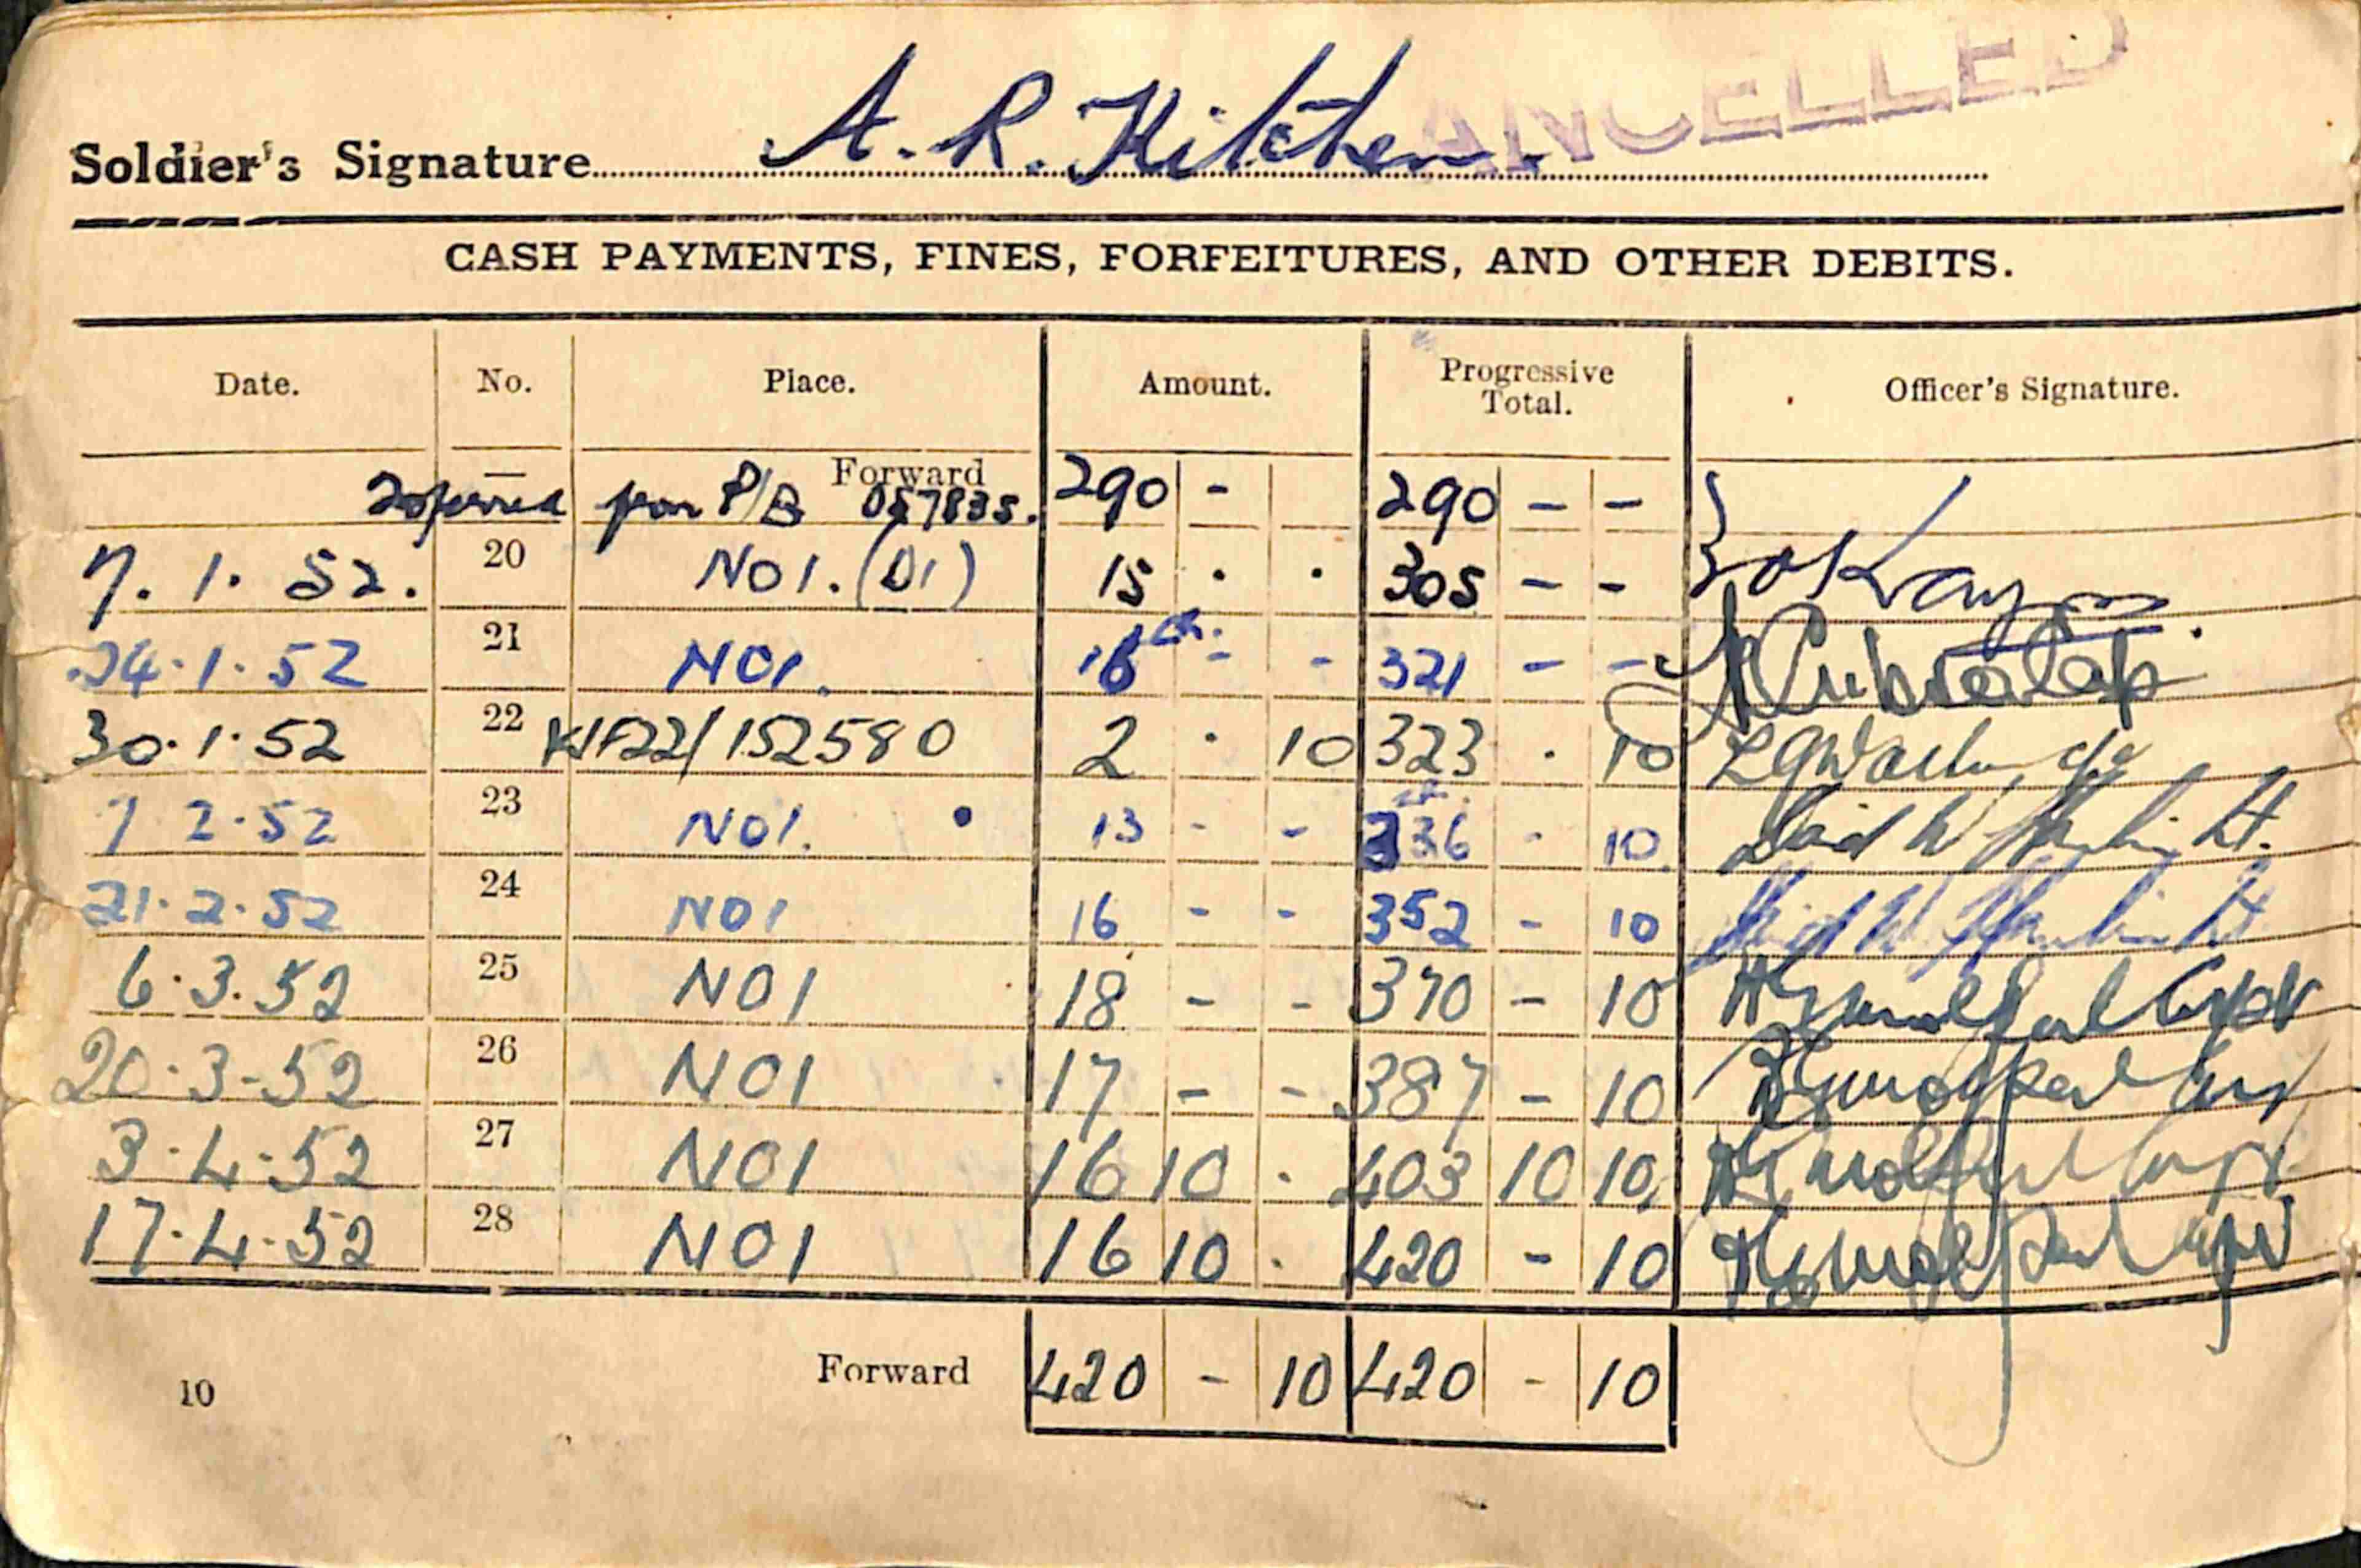 ANCELLED
Soldier's Signature A. R. Kitchen
CASH PAYMENTS, FINES, FORFEITURES, AND OTHER DEBITS.
Date. No. Place. Amount. Progressive Total. Officer's Signature.
— Forward
P/B 057835. 290 - 290 - -
7. 1. 52. 20 NO1. (D1) 15 . . 305 - -
24.1.52 21 NO1. 16 - - 321 - -
30.1.52 22 152580 2 . 10 323 . 10
7 2.52 23 NO1. 13 - - 336 - 10 Lt.
21.2.52 24 NO1 16 - - 352 - 10 Lt
6.3.52 25 NO1 18 - - 370 - 10
20.3-52 26 NO1 17 - - 387 - 10
3.4.52 27 NO1 16 10 . 403 10 10
17.4.52 28 NO1 16 10 . 420 - 10
Forward 420 - 10 420 - 10
10